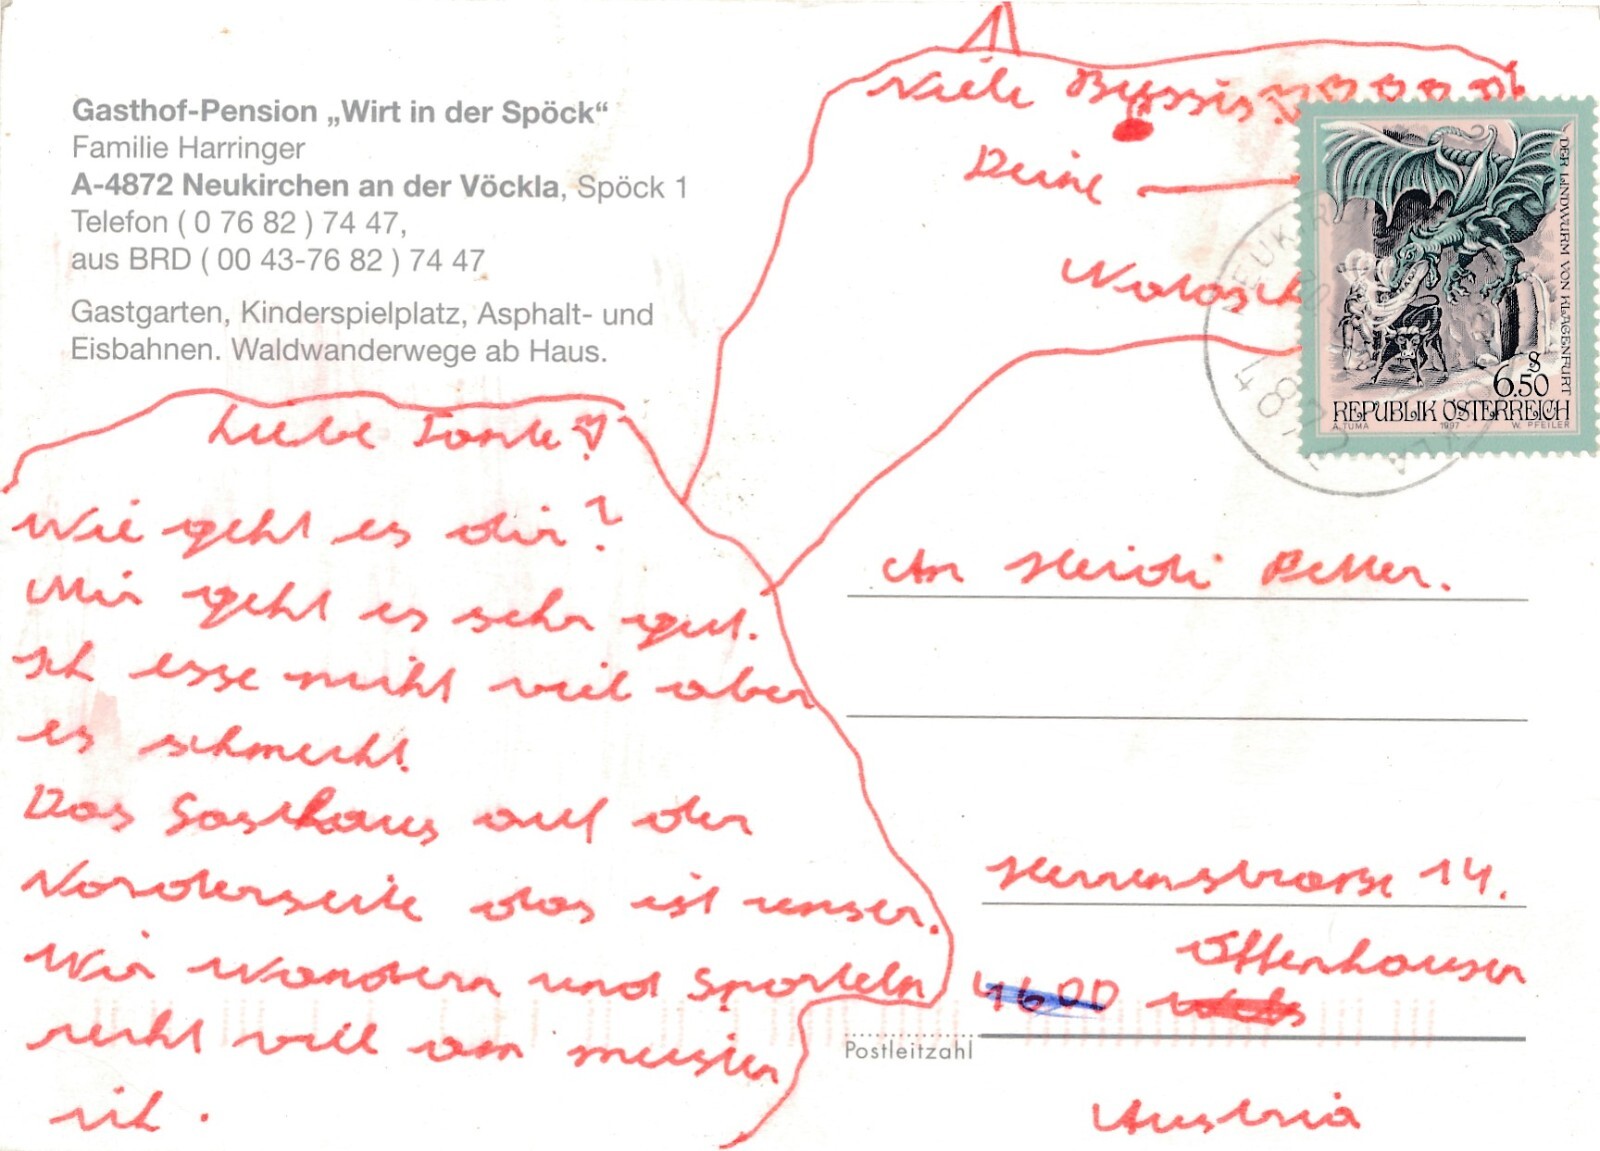 Gasthof-Pension „Wirt in der Spöck“
Familie Harringer
A-4872 Neukirchen an der Vöckla, Spöck 1
Telefon ( 0 76 82 ) 74 47,
aus BRD ( 00 43-76 82 ) 74 47
Gastgarten, Kinderspielplatz, Asphalt- und
Eisbahnen. Waldwanderwege ab Haus.
Liebe Tante
Wie geht es dir?
Mir geht es sehr gut.
Ich esse nicht viel aber
es schmeckt.
Das Gasthaus auf der
Vorderseite das ist unser.
Wir wandern und Sporteln
recht viel am meisten
ich.
Viele Bussis
Deine
DER LINDWURM VON KLAGENFURT
6.50 S
REPUBLIK ÖSTERREICH
A. TUMA 1997 W. PFEILER
An Heidi
Herrenstrasse 14.
Offenhausen
4600 Wels
Postleitzahl
Austria